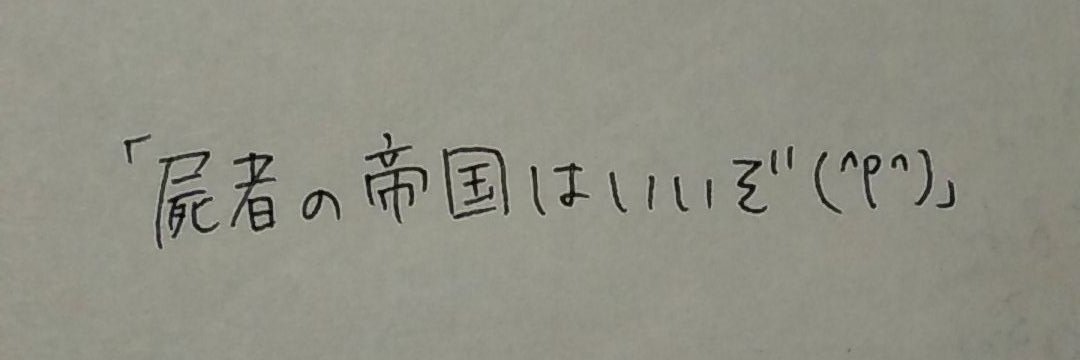 「屍者の帝国はいいぞ(^p^)」